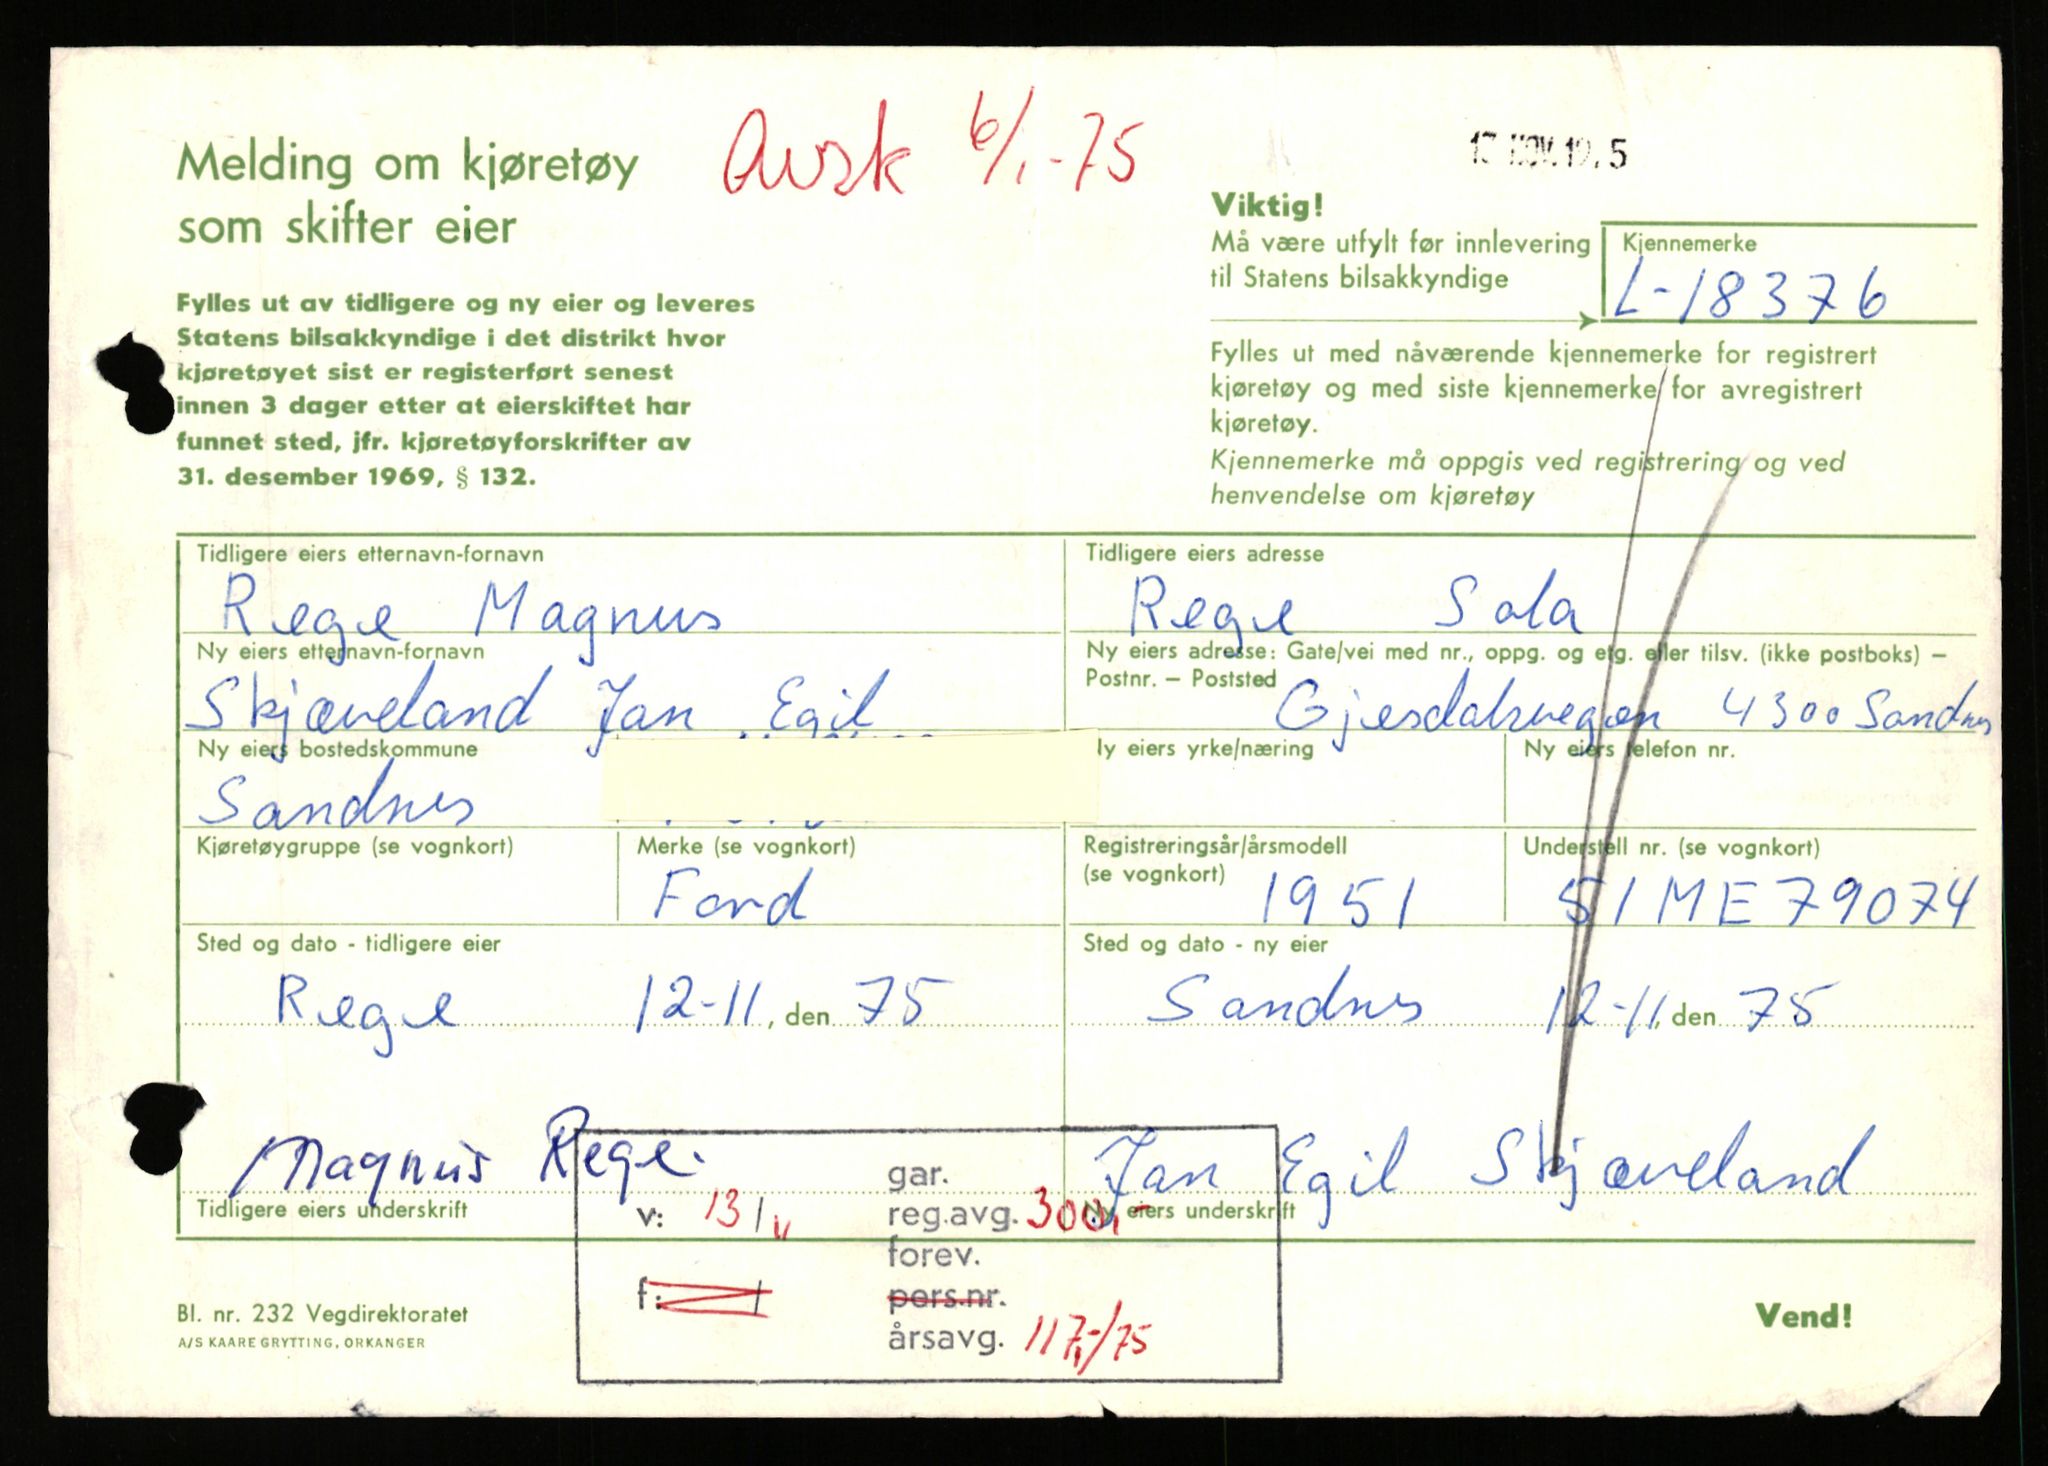 Melding om kjøretøy
som skifter eier
Avsk 6/1-75
Fylles ut av tidligere og ny eier og leveres
Statens bilsakkyndige i det distrikt hvor
kjøretøyet sist er registerført senest
innen 3 dager etter at eierskiftet har
funnet sted, jfr. kjøretøyforskrifter av
31. desember 1969, § 132.
Viktig!
Må være utfylt før innlevering
til Statens bilsakkyndige
Kjennemerke
L-18376
Fylles ut med nåværende kjennemerke for registrert
kjøretøy og med siste kjennemerke for avregistrert
kjøretøy.
Kjennemerke må oppgis ved registrering og ved
henvendelse om kjøretøy
Tidligere eiers etternavn-fornavn
Rege Magnus
Tidligere eiers adresse
Rege Sola
Ny eiers etternavn-fornavn
Skjæveland Jan Egil
Ny eiers adresse: Gate/vei med nr., oppg. og etg. eller tilsv. (ikke postboks) –
Postnr. – Poststed
Gjesdalsvegen 4300 Sandnes
Ny eiers bostedskommune
Sandnes
Ny eiers yrke/næring
Ny eiers telefon nr.
Kjøretøygruppe (se vognkort)
Merke (se vognkort)
Ford
Registreringsår/årsmodell
(se vognkort) 1951
Understell nr. (se vognkort)
51ME79074
Sted og dato - tidligere eier
Rege 12-11, den 75
Sted og dato - ny eier
Sandnes 12-11, den 75
Magnus Rege.
Tidligere eiers underskrift
Jan Egil Skjæveland
Ny eiers underskrift
v: 13/11
f: /
gar.
reg.avg. 300,-
forev.
pers.nr.
årsavg. 117,-/75
Bl. nr. 232 Vegdirektoratet
A/S KAARE GRYTTING, ORKANGER
Vend!